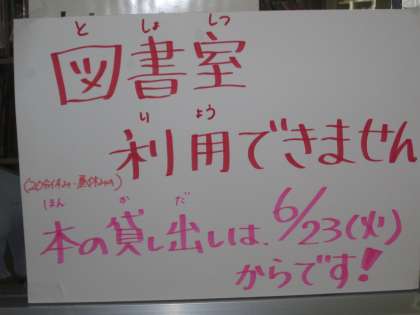 としょしつ
図書室
りよう
利用できません
(20分休み・昼休み)
ほん か だ
本の貸し出しは、6/23(火)
からです!